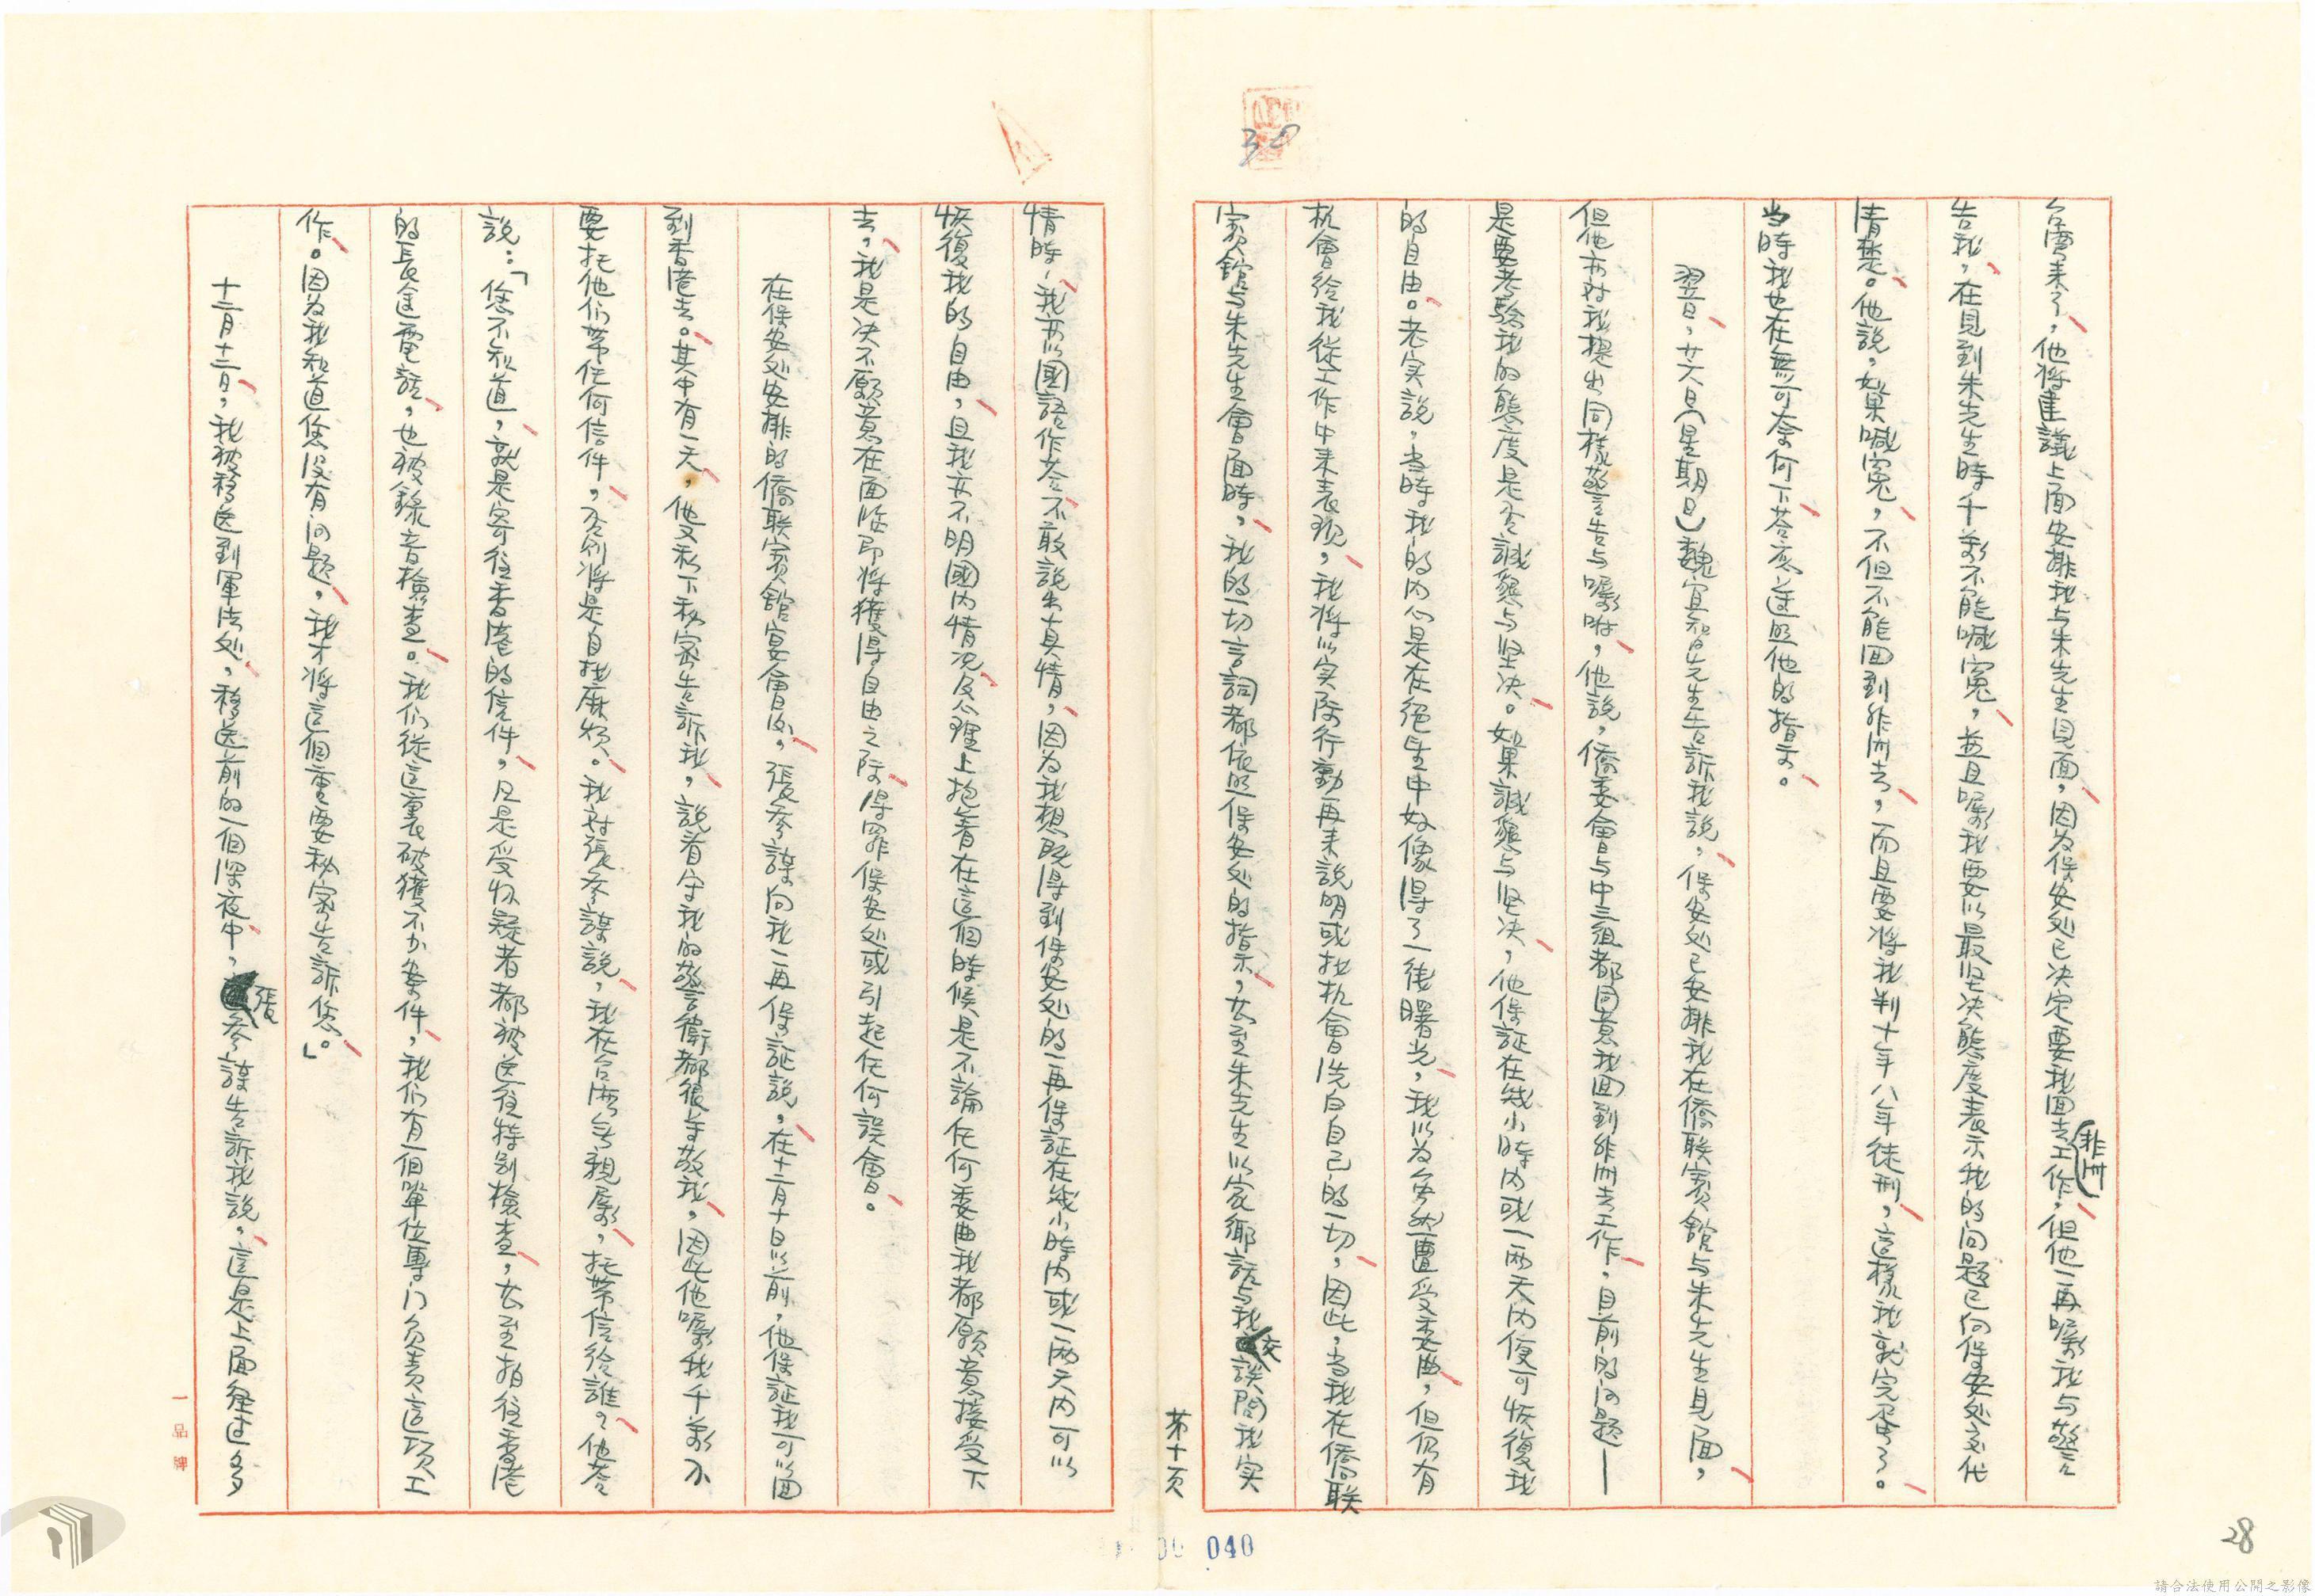 台灣来了，他将建議上面安排我与朱先生見面，因为保安处已决定要我回去（非洲）工作，但他一再囑我与警
告我，在見到朱先生時千萬不能喊寃，並且囑我要以最坚决態度表示我的问題已向保安处交代
清楚。他說，如果喊寃，不但不能回到非洲去，而且要将我判十年八年徒刑，這樣我就完蛋了。
当時我也在無可奈何下答应遵照他的指示。
翌日，廿六日（星期日）魏宜智先生告訴我說，保安处已安排我在僑联賓館与朱先生見面，
但他亦对我提出同樣警告与囑咐，他說，僑委會与中三組都同意我回到非洲去工作，目前的问題——
是要考驗我的態度是否誠懇与坚决。如果誠懇与坚决，他保証在幾小時内或一両天内便可恢復我
的自由。老实說，当時我的内心是在絕望中好像得了一線曙光，我以为無然遭受委曲，但仍有
机會给我從工作中来表現，我将以实际行動再来說明或找机會洗白自己的一切，因此，当我在僑联
賓館与朱先生會面時，我的一切言詞都依照保安处的指示，甚至朱先生以家鄉話与我交談問我实
第十页
情時，我亦以國語作答不敢說出真情，因为我想既得到保安处的一再保証在幾小時内或一両天内可以
恢復我的自由，且我亦不明國内情况及心理上抱着在這個時候是不論任何委曲我都願意接受下
去，我是决不願意在面临即将獲得自由之际得罪保安处或引起任何誤會。
在保安处安排的僑联賓館宴會后，張参謀向我一再保証說，在十二月十日以前，他保証我可以回
到香港去。其中有一天，他又私下秘密告訴我，說看守我的警衛都很尊敬我，因此他囑我千萬不
要托他们帶任何信件，否則将是自找麻烦。我对張参謀說，我在台灣無親屬，托帶信给誰？他答
說：「您不知道，就是寄往香港的信件，凡是受怀疑者都被送往特别檢查，甚至拍往香港
的長途電話，也被錄音檢查。我们從這裏破獲不少案件，我们有一個單位專门负责這项工
作。因为我知道您没有问題，我才将這個重要秘密告訴您。」
十二月十二日，我被移送到軍法处，移送前的一個深夜中，張参謀告訴我說，這是上面經过多
一品牌
30
28
040
請合法使用公開之影像